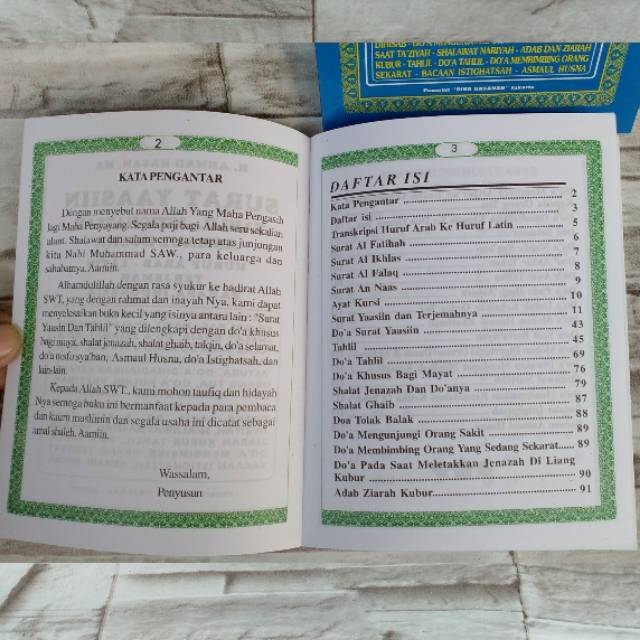 SAAT TA'ZIYAH - SHALAWAT NARIYAH - ADAB DAN ZIARAH
KUBUR - TAHLIL - DO'A TAHLIL - DO'A MEMBIMBING ORANG
SEKARAT - BACAAN ISTIGHATSAH - ASMAUL HUSNA
Penerbit
2
KATA PENGANTAR
Dengan menyebut nama Allah Yang Maha Pengasih
lagi Maha Penyayang. Segala puji bagi Allah seru sekalian
alam. Shalawat dan salam semoga tetap atas junjungan
kita Nabi Muhammad SAW., para keluarga dan
sahabatnya, Aamiin.
Alhamdulillah dengan rasa syukur ke hadirat Allah
SWT, yang dengan rahmat dan inayah Nya, kami dapat
menyelesaikan buku kecil yang isinya antara lain : "Surat
Yaasin Dan Tahlil" yang dilengkapi dengan do'a khusus
bagi mayat, shalat jenazah, shalat ghaib, talqin, do'a selamat,
do'a nisfu sya'ban, Asmaul Husna, do'a Istighatsah, dan
lain-lain.
Kepada Allah SWT., kami mohon taufiq dan hidayah
Nya semoga buku ini bermanfaat kepada para pembaca
dan kaum muslimin dan segala usaha ini dicatat sebagai
amal shaleh, Aamiin.
Wassalam,
Penyusun
3
DAFTAR ISI
Kata Pengantar 2
Daftar isi 3
Transkripsi Huruf Arab Ke Huruf Latin 5
Surat Al Fatihah 6
Surat Al Ikhlas 7
Surat Al Falaq 8
Surat An Naas 9
Ayat Kursi 10
Surat Yaasiin dan Terjemahnya 11
Do'a Surat Yaasiin 43
Tahlil 45
Do'a Tahlil 69
Do'a Khusus Bagi Mayat 76
Shalat Jenazah Dan Do'anya 79
Shalat Ghaib 87
Doa Tolak Balak 88
Do'a Mengunjungi Orang Sakit 89
Do'a Membimbing Orang Yang Sedang Sekarat 89
Do'a Pada Saat Meletakkan Jenazah Di Liang
Kubur 90
Adab Ziarah Kubur 91